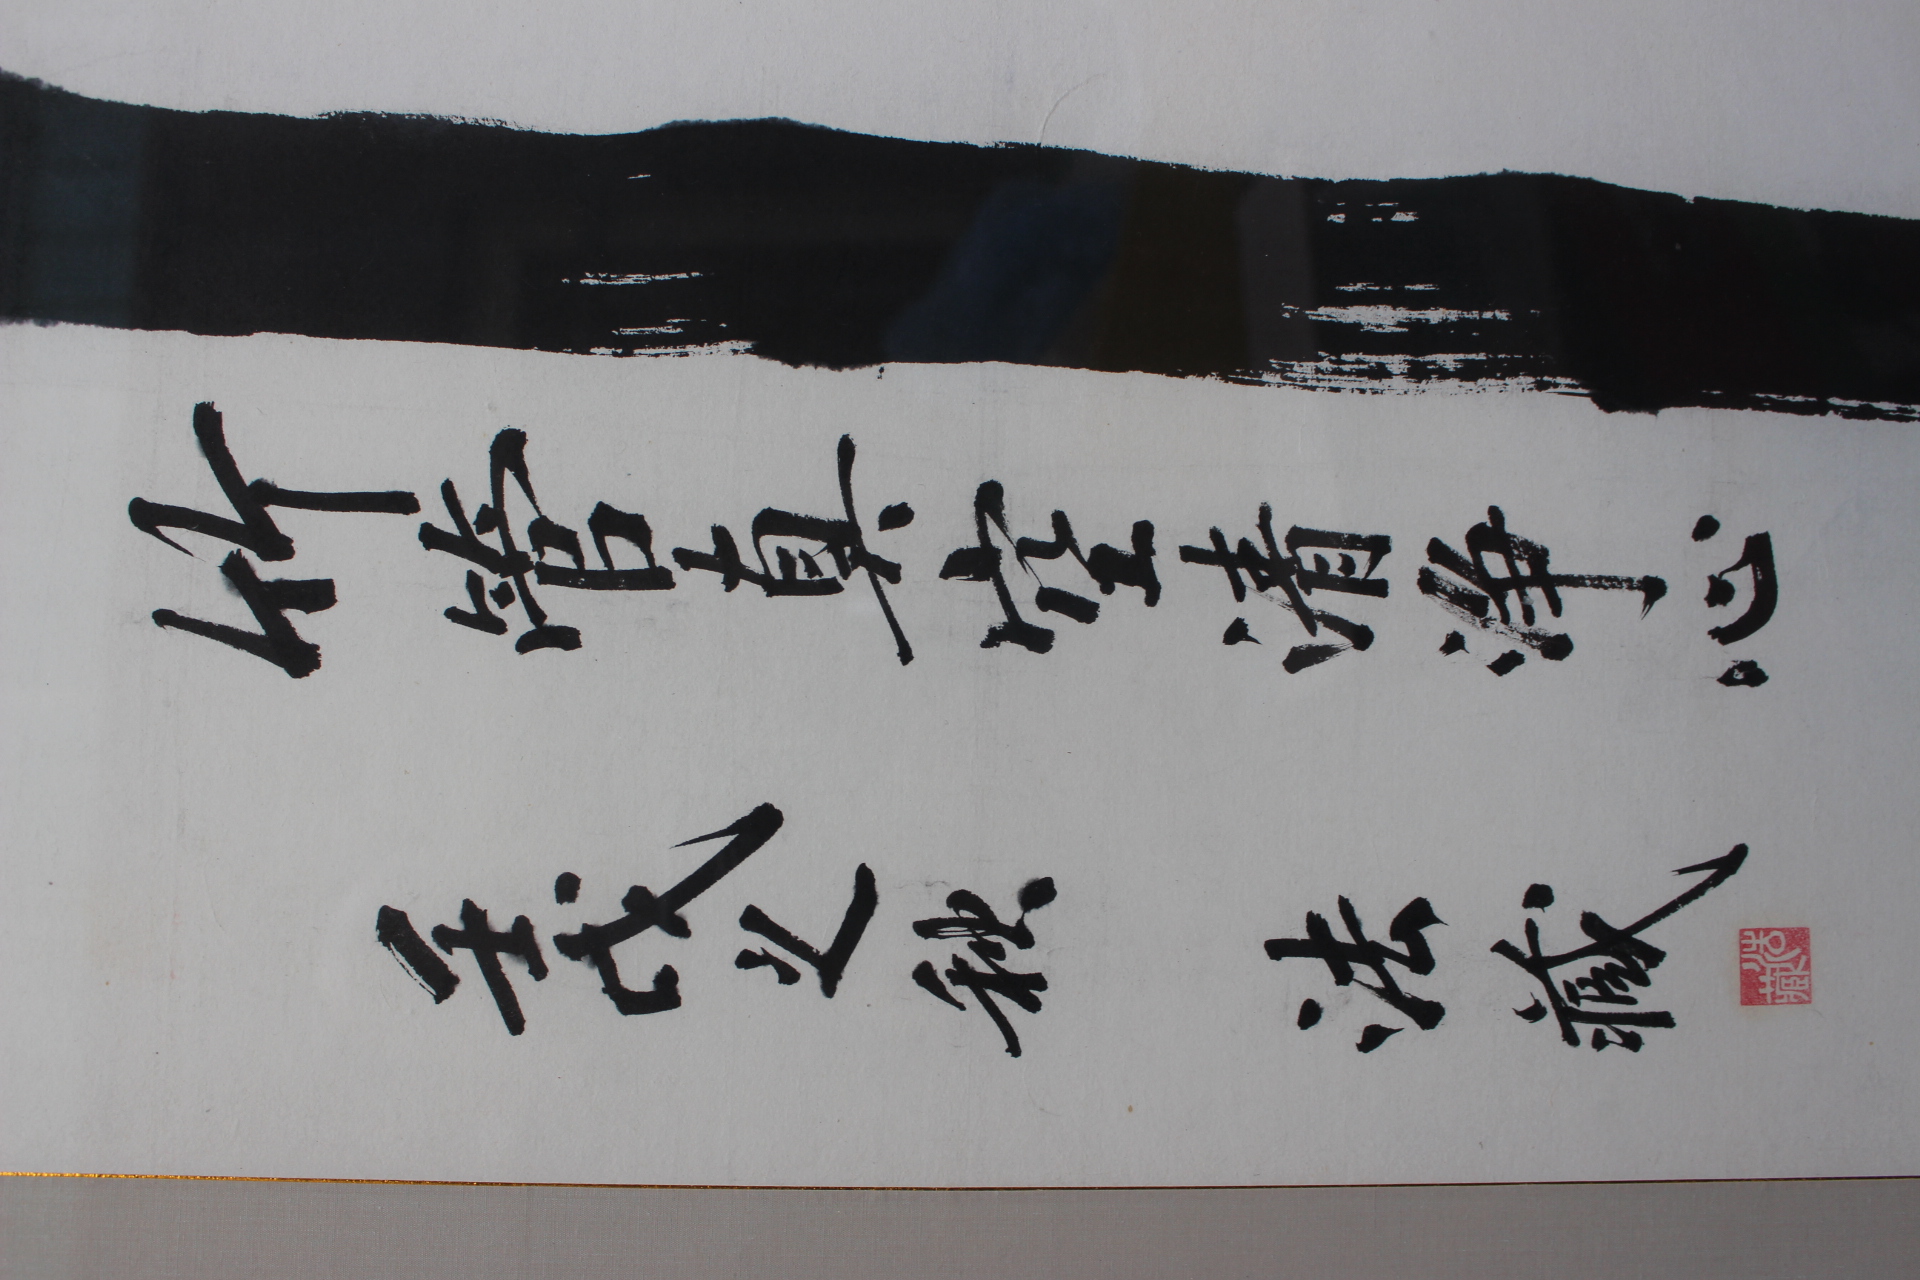 竹管真空清浄心
壬戌之秋 法藏
法藏